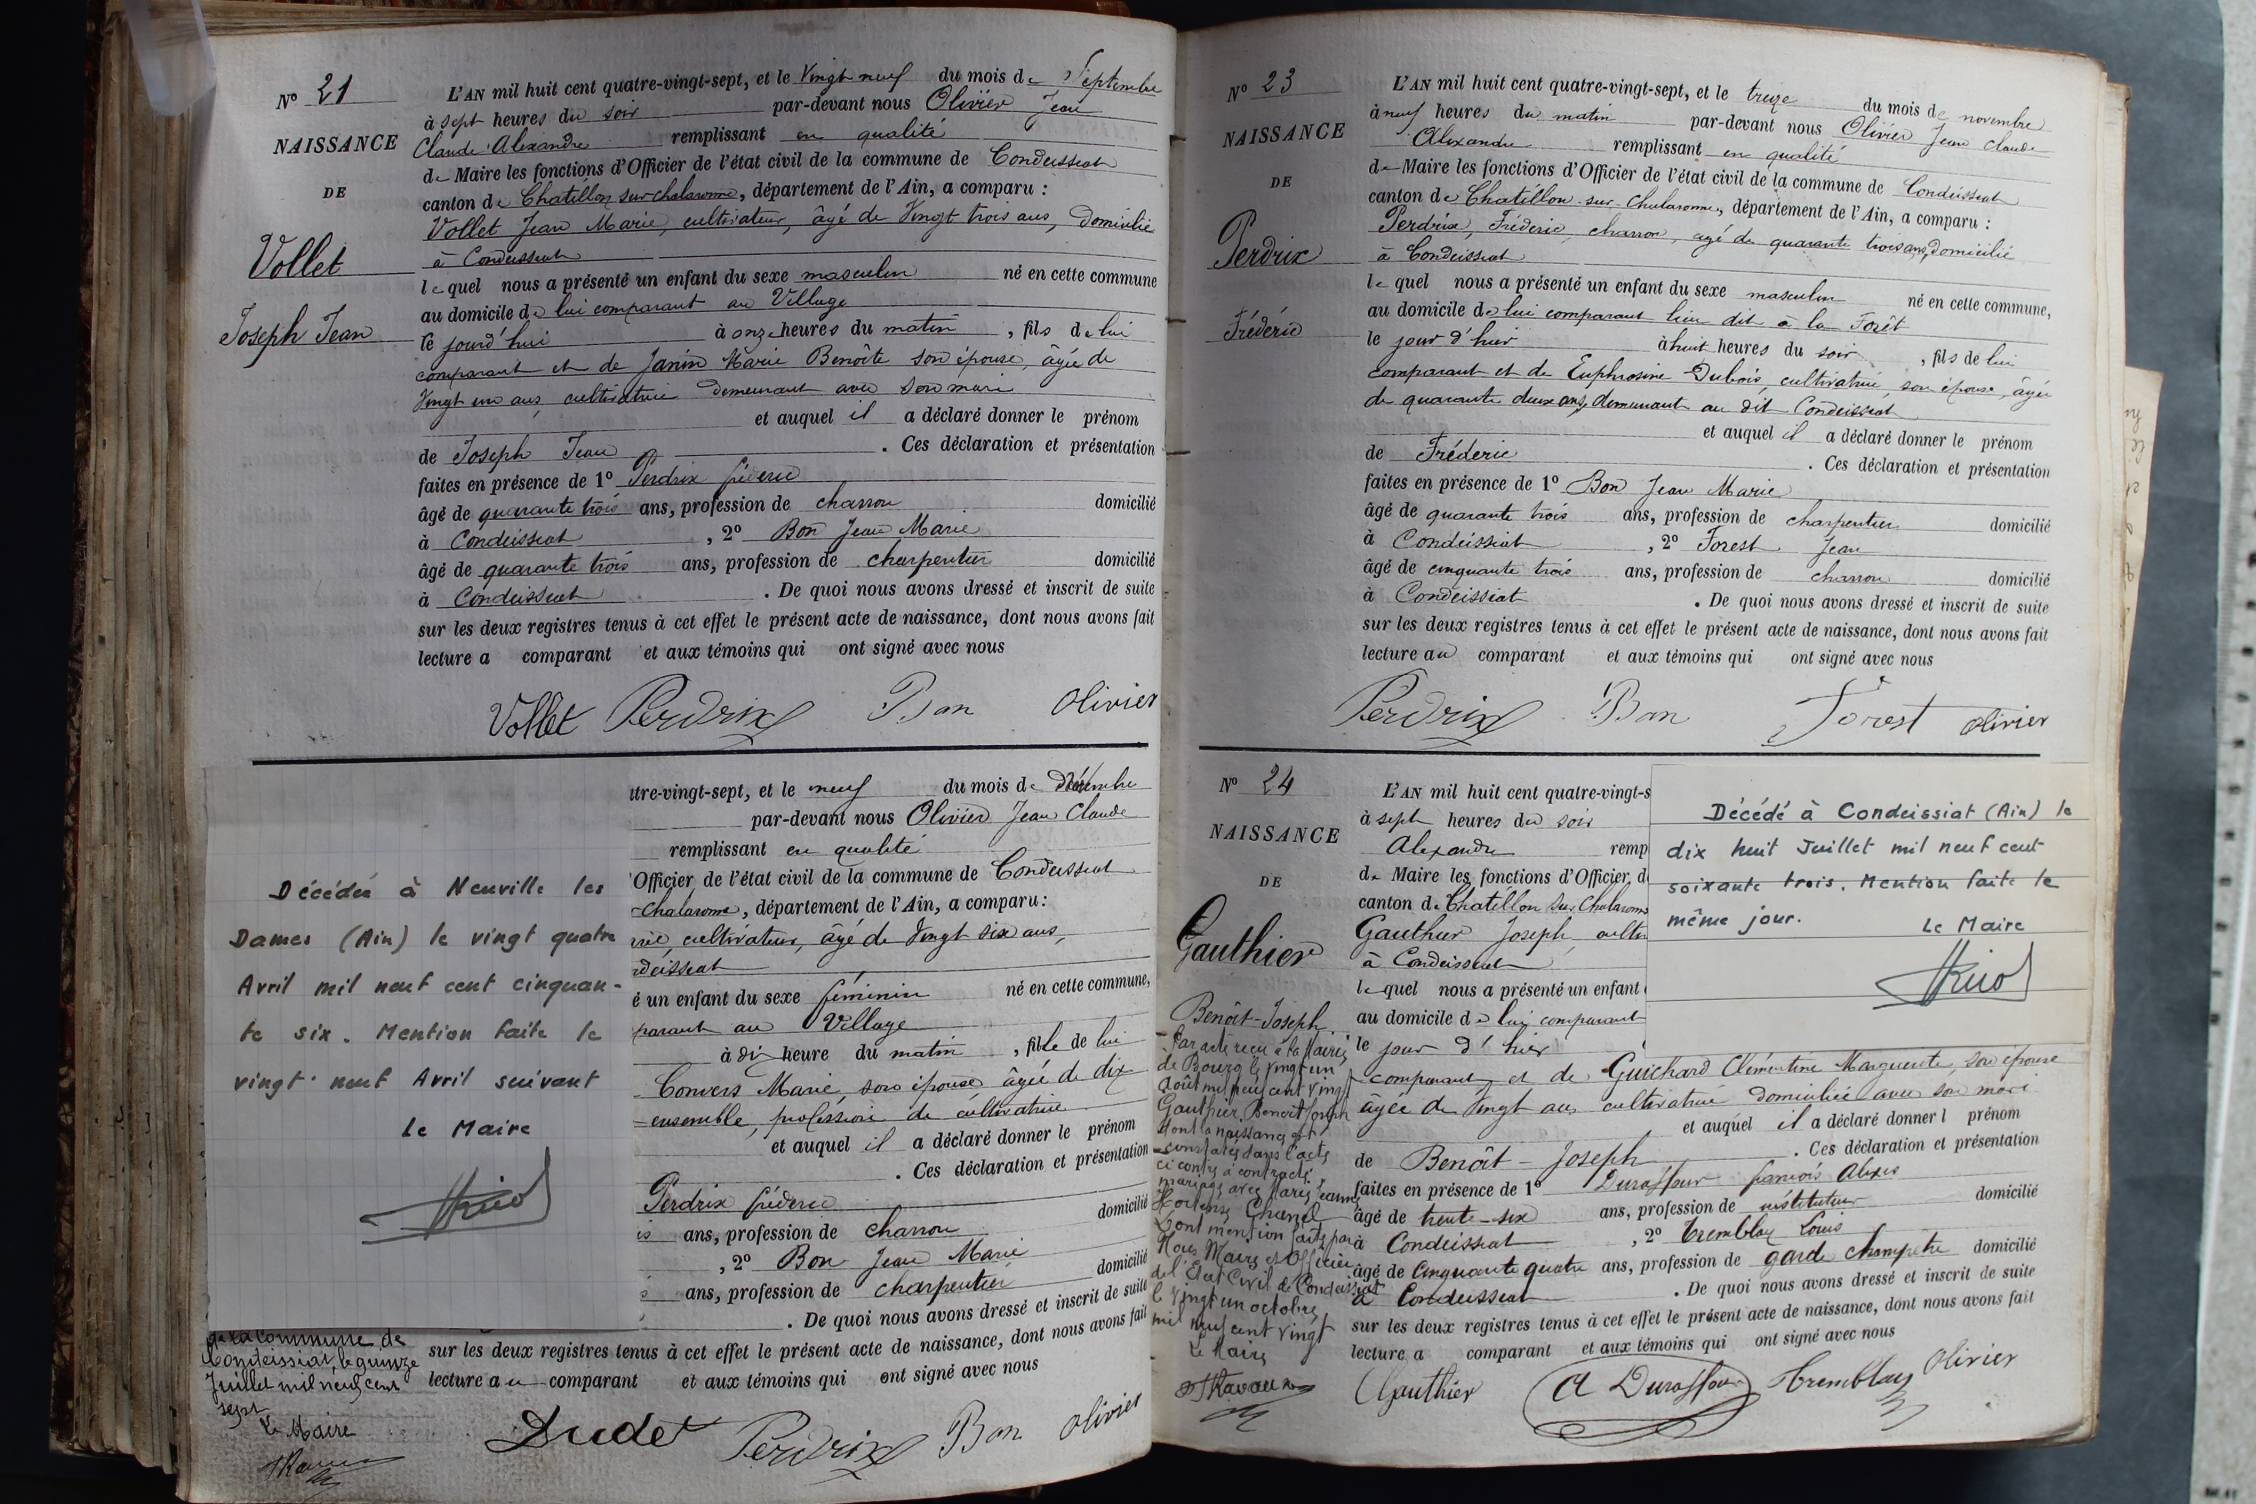 N° 21
NAISSANCE
DE
Vollet
Joseph Jean
L'AN mil huit cent quatre-vingt-sept, et le Vingt neuf du mois de Septembre
à sept heures du soir par-devant nous Olivier Jean
Claude Alexandre remplissant en qualité
de Maire les fonctions d'Officier de l'état civil de la commune de Condeissiat
canton de Chatillon sur chalaronne, département de l'Ain, a comparu :
Vollet Jean Marie, cultivateur, âgé de Vingt trois ans, domicilié
à Condeissiat
lequel nous a présenté un enfant du sexe masculin né en cette commune
au domicile de lui comparant au Village
le jourd'hui à onze heures du matin, fils de lui
comparant et de Janin Marie Benoîte son épouse, âgée de
Vingt un ans, cultivatrice demeurant avec son mari
et auquel il a déclaré donner le prénom
de Joseph Jean. Ces déclaration et présentation
faites en présence de 1° Perdrix fréderic
âgé de quarante trois ans, profession de charron domicilié
à Condeissiat, 2° Bon Jean Marie
âgé de quarante trois ans, profession de charpentier domicilié
à Condeissiat. De quoi nous avons dressé et inscrit de suite
sur les deux registres tenus à cet effet le présent acte de naissance, dont nous avons fait
lecture a comparant et aux témoins qui ont signé avec nous
Vollet Perdrix Bon Olivier
Décédée à Neuville les
Dames (Ain) le vingt quatre
Avril mil neuf cent cinquan-
te six. Mention faite le
vingt-neuf Avril suivant
Le Maire
de la Commune de
Condeissiat, le quinze
Juillet mil neuf cent
sept
Le Maire
utre-vingt-sept, et le neuf du mois de
par-devant nous Olivier Jean Claude
remplissant en qualité
'Officier de l'état civil de la commune de Condeissiat
chalaronne, département de l'Ain, a comparu :
rie, cultivateur, âgé de Vingt six ans,
deissiat
é un enfant du sexe féminin né en cette commune,
parant au Village
à dix heure du matin, fille de lui
Convers Marie, son épouse âgée de dix
ensemble, profession de cultivatrice
et auquel il a déclaré donner le prénom
. Ces déclaration et présentation
Perdrix fréderic
is ans, profession de charron domicilié
, 2° Bon Jean Marie
s ans, profession de charpentier domicilié
. De quoi nous avons dressé et inscrit de suite
sur les deux registres tenus à cet effet le présent acte de naissance, dont nous avons fait
lecture au comparant et aux témoins qui ont signé avec nous
Dudet Perdrix Bon Olivier
N° 23
NAISSANCE
DE
Perdrix
Fréderic
L'AN mil huit cent quatre-vingt-sept, et le treize du mois de novembre
à neuf heures du matin par-devant nous Olivier Jean Claude
Alexandre remplissant en qualité
de Maire les fonctions d'Officier de l'état civil de la commune de Condeissiat
canton de Chatillon-sur-Chalaronne, département de l'Ain, a comparu :
Perdrix, Fréderic, charron, agé de quarante trois ans, domicilié
à Condeissiat
le quel nous a présenté un enfant du sexe masculin né en cette commune,
au domicile de lui comparant lieu dit à la Forêt
le jour d'hier à huit heures du soir, fils de lui
comparant et de Euphrosine Dubois, cultivatrice, son épouse, âgée
de quarante deux ans, demeurant au dit Condeissiat
et auquel il a déclaré donner le prénom
de Fréderic. Ces déclaration et présentation
faites en présence de 1° Bon Jean Marie
âgé de quarante trois ans, profession de charpentier domicilié
à Condeissiat, 2° Forest Jean
âgé de cinquante trois ans, profession de charron domicilié
à Condeissiat. De quoi nous avons dressé et inscrit de suite
sur les deux registres tenus à cet effet le présent acte de naissance, dont nous avons fait
lecture au comparant et aux témoins qui ont signé avec nous
Perdrix Bon Forest Olivier
N° 24
NAISSANCE
DE
Gauthier
Benoît-Joseph
Par acte reçu à la Mairie
de Bourg le vingt un
Août mil neuf cent vingt
Gauthier Benoît Joseph
dont la naissance est
constatée dans l'acte
ci contre a contracté
mariage avec Marie Jeanne
Hortense
Dont mention faite par
Nous Maire et Officier
de l'Etat Civil de Condeissiat
le vingt un octobre
mil neuf cent vingt
Le Maire
L'AN mil huit cent quatre-vingt-s
à sept heures du soir
Alexandre remp
de Maire les fonctions d'Officier d
canton de Chatillon sur Chalaronne
Gauthier Joseph, culti
à Condeissiat
le quel nous a présenté un enfant
au domicile de lui comparant
le jour d'hier
comparant et de Guichard Clémentine Marguerite, son épouse
âgée de Vingt ans cultivatrice domiciliée avec son mari
et auquel il a déclaré donner l prénom
de Benoît-Joseph. Ces déclaration et présentation
faites en présence de 1° Duraffour françois Alexis
âgé de trente-six ans, profession de instituteur domicilié
à Condeissiat, 2° Tremblay Louis
âgé de Cinquante quatre ans, profession de garde champetre domicilié
à Condeissiat. De quoi nous avons dressé et inscrit de suite
sur les deux registres tenus à cet effet le présent acte de naissance, dont nous avons fait
lecture a comparant et aux témoins qui ont signé avec nous
Gauthier A Duraffour Tremblay Olivier
Décédé à Condeissiat (Ain) le
dix huit Juillet mil neuf cent
soixante trois. Mention faite le
même jour.
Le Maire